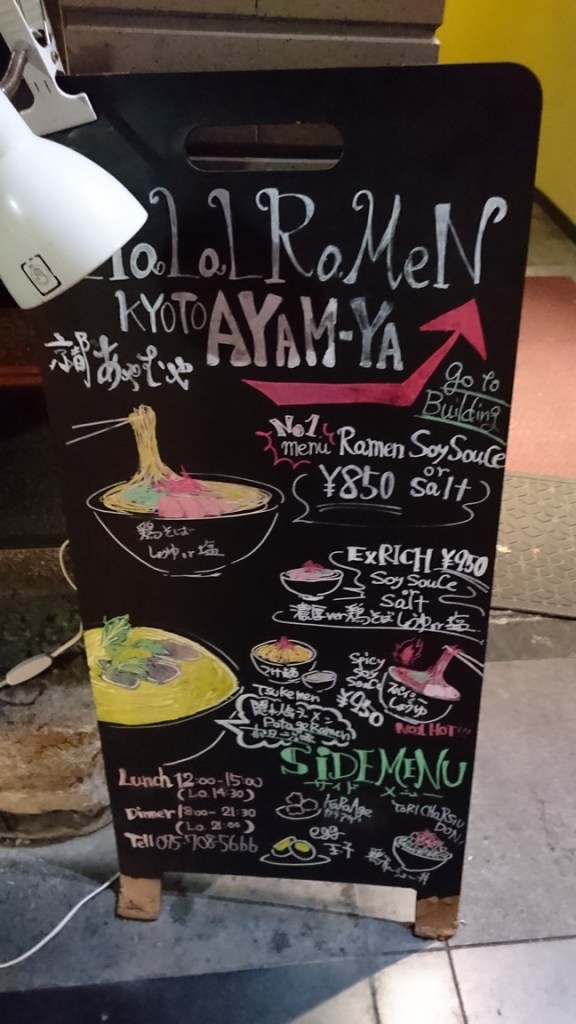 HaLaL RaMeN
KYOTO AYAM-YA
京都 あやむや
go to
Building
No.1
menu
Ramen Soy Sauce
or
¥850 salt
鶏そば
しょうゆ or 塩
ExRICH ¥950
Soy Sauce
or
Salt
濃厚ver 鶏そば しょうゆ or 塩
つけ麺
Tsukemen
¥950
Spicy
Soy
Sauce
スパイシー
しょうゆ
No.1 HOT!!
Potage Ramen
SiDEMENU
サイド メニュー
Lunch 12:00-15:00
(L.o. 14:30)
Dinner 18:00-21:30
(L.o. 21:00)
Tell 075-708-5666
KaRaAge
カラアゲ
egg
玉子
ToRi CHaRSiU
DON!
鶏チャーシュー丼